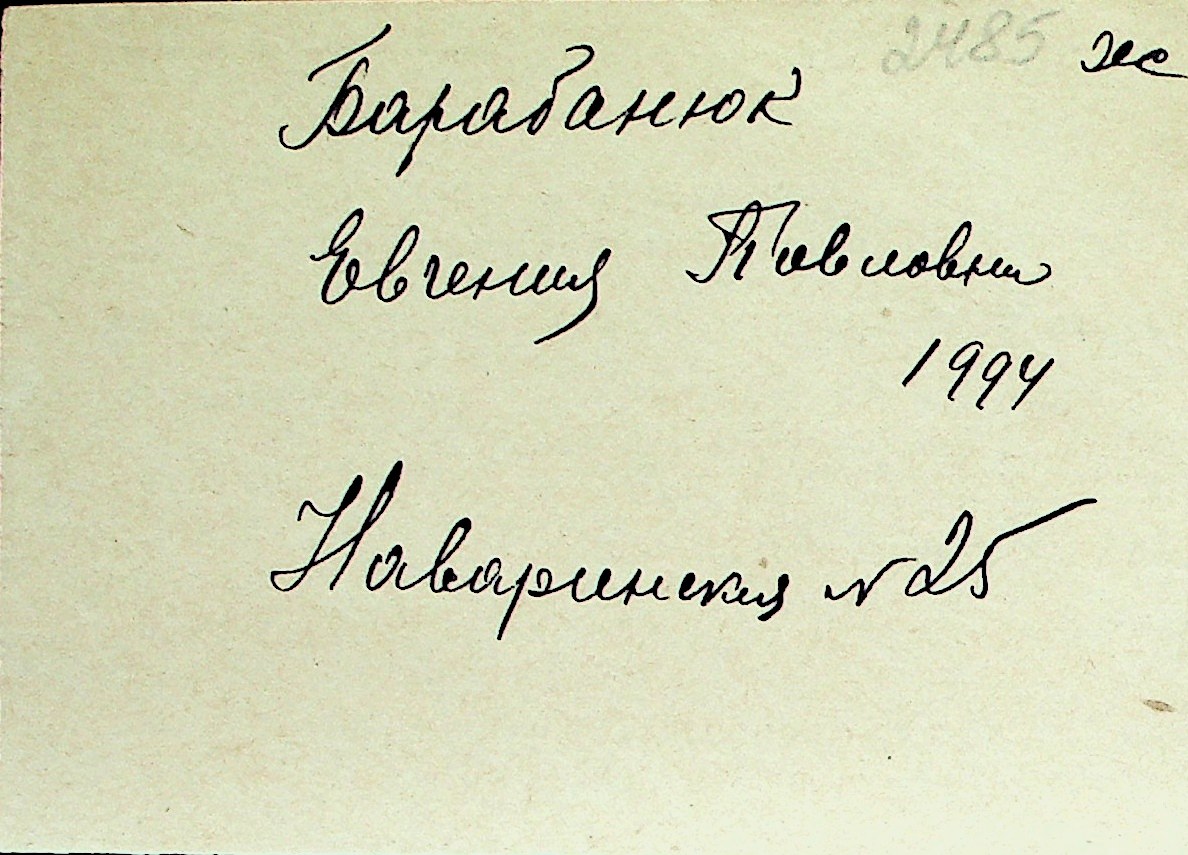 2485 ж
Барабанюк
Евгения Павловна
1994
Наваринская № 25